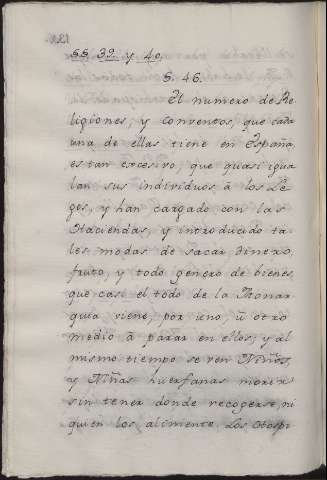 §§. 39. y 40.
§. 46.
El numero de Re
ligiones, y conventos, que cada
una de ellas tiene en España,
es tan excesivo, que quasi igua
lan sus individuos à los Le
gos, y han cargado con las
Haciendas, y introducido ta
les modas de sacar dinero,
fruto, y todo genero de bienes,
que casi el todo de la Monar
quia viene, por uno, ù otro
medio à parar en ellos, y al
mismo tiempo se ven Niños,
y Niñas huerfanas morir
sin tener donde recogerse, ni
quien los alimente. Los Obispi